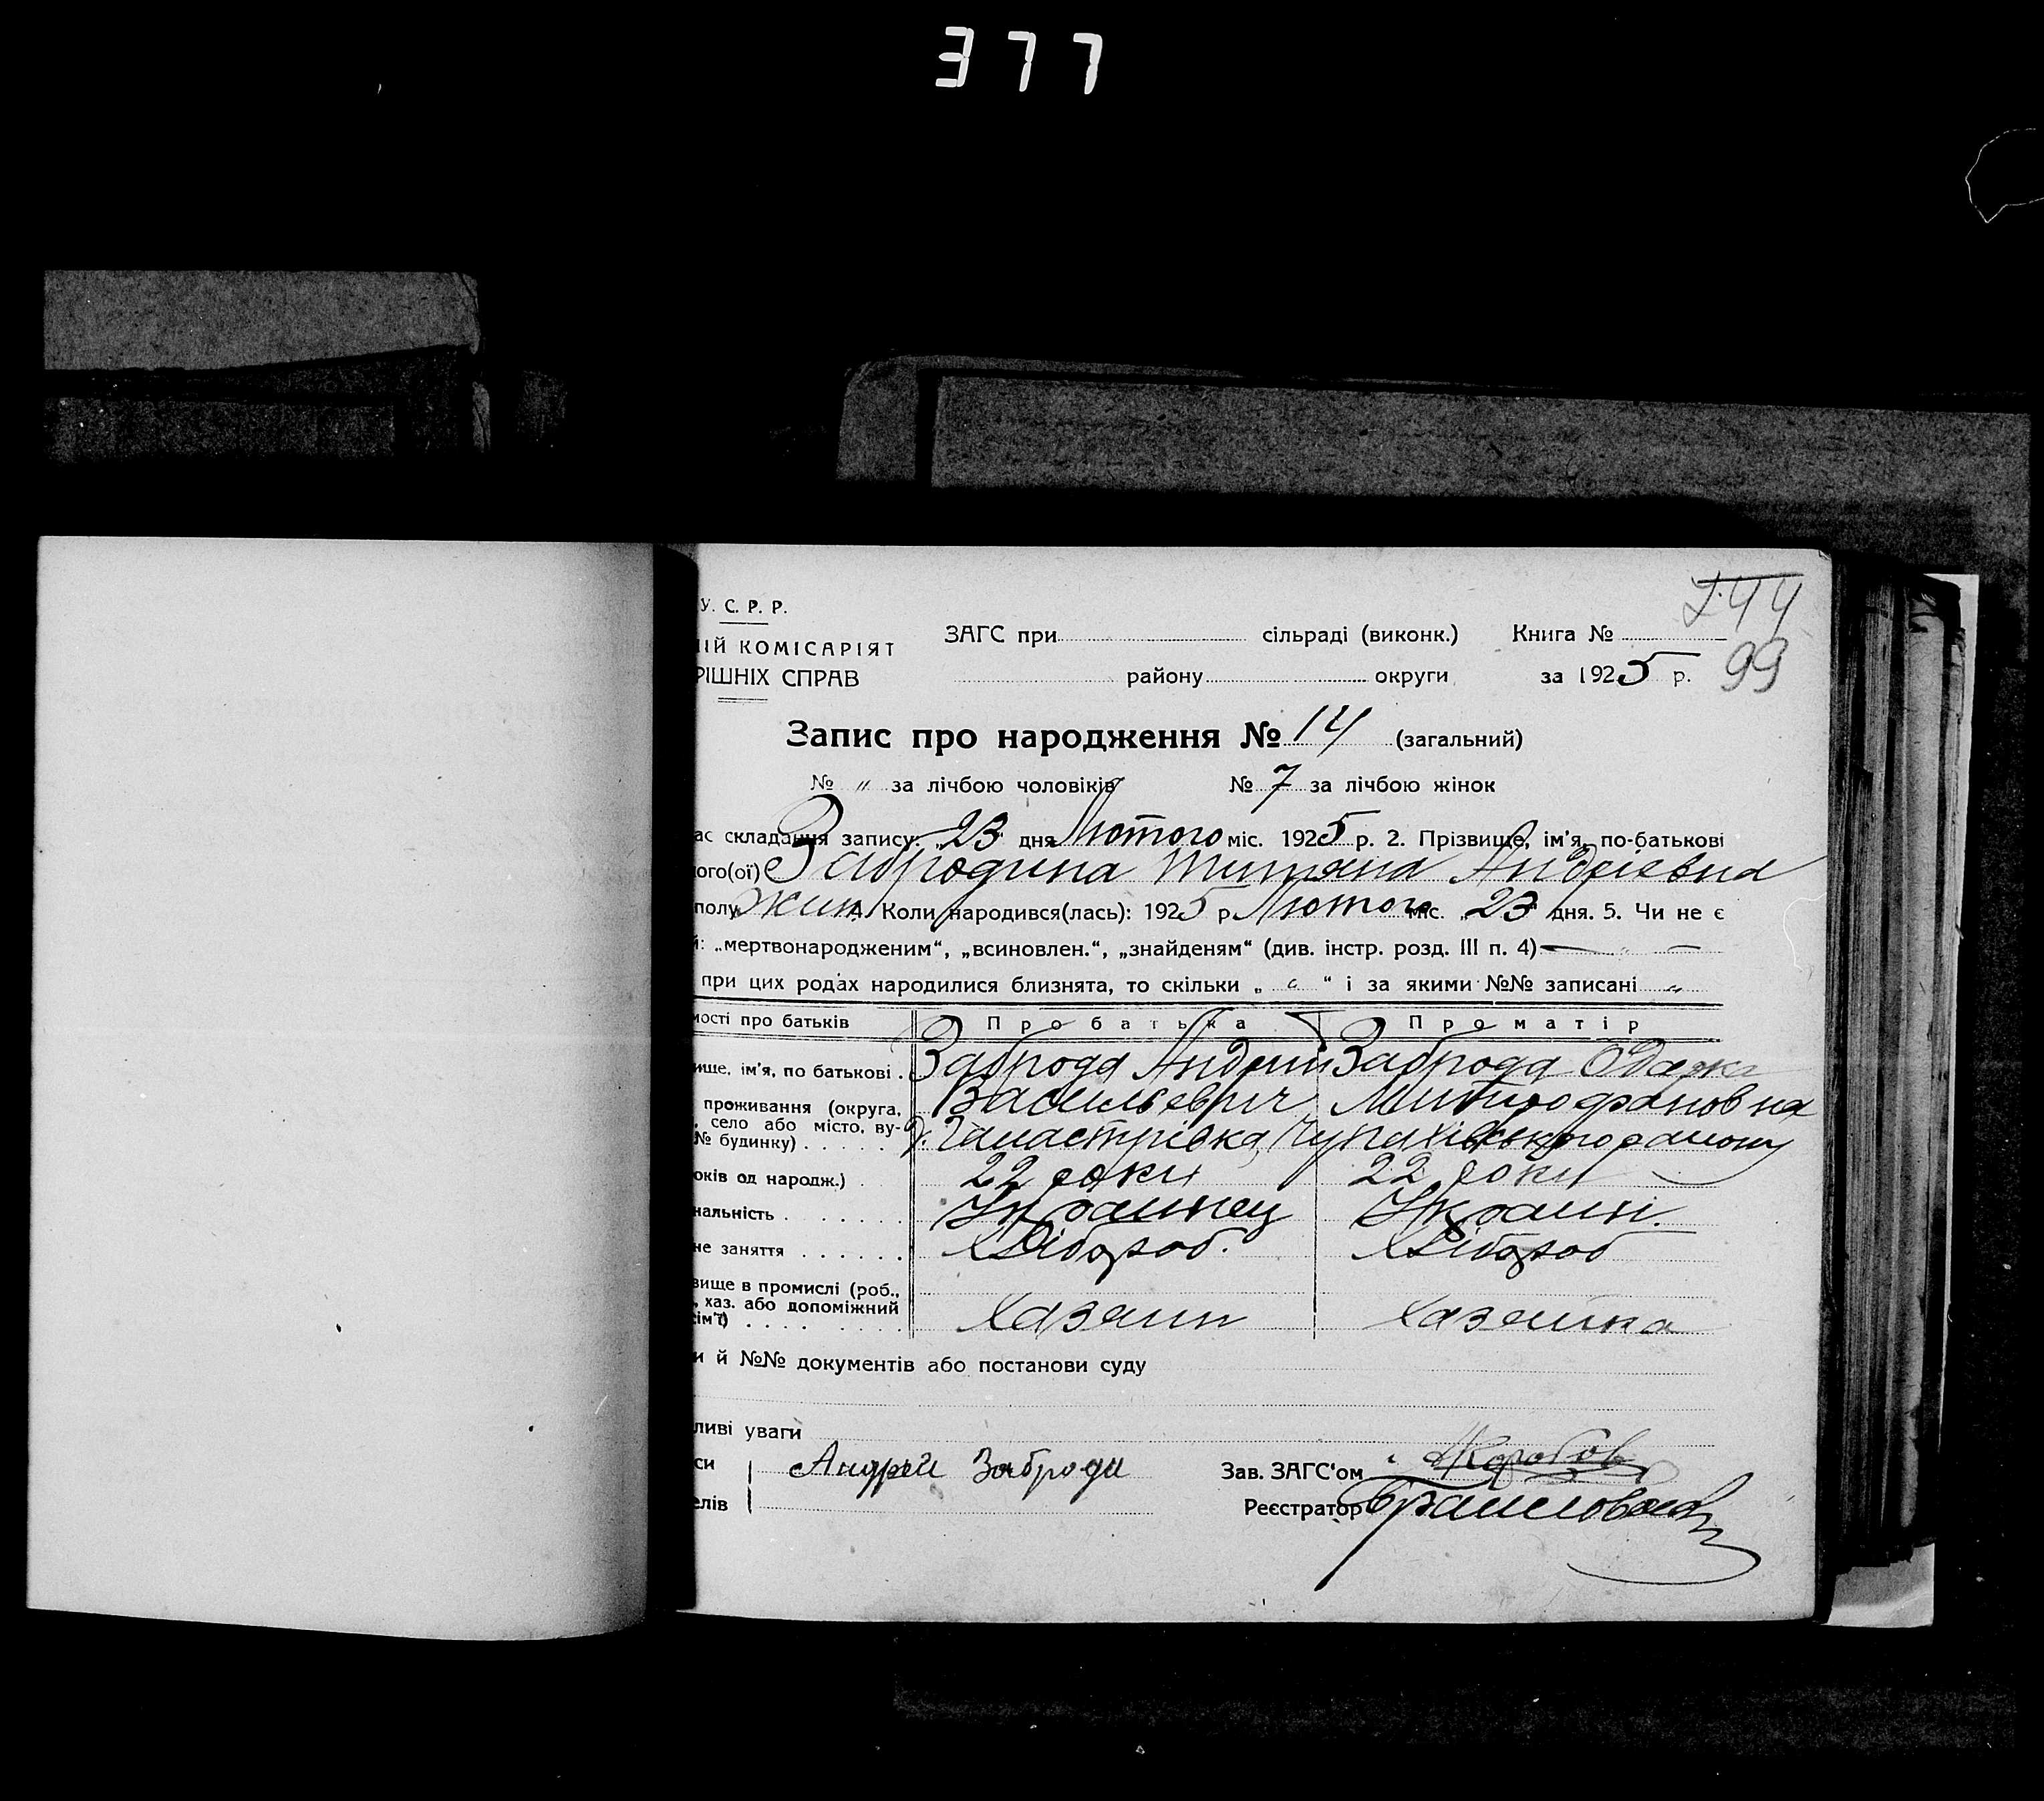 377
У. С. Р. Р.
244
ІЙ КОМІСАРІЯТ
ЗАГС при сільраді (виконк.) Книга №
РІШНІХ СПРАВ
району округи за 1925 р.
99
Запис про народження № 14 (загальний)
№ „ за лічбою чоловіків № 7 за лічбою жінок
ас складання запису: „23“ дня Лютого міс. 1925 р. 2. Прізвище, ім'я, по-батькові
ого(ої) Забродина Титяна Андрієвна
полу жин. 4. Коли народився(лась): 1925 р. Лютого міс. „23“ дня. 5. Чи не є
й: „мертвонародженим“, „всиновлен.“, „знайденям“ (див. інстр. розд. III п. 4) — „ —
при цих родах народилися близнята, то скільки „ „ “ і за якими №№ записані „
мості про батьків Про батька Про матір
ище, ім'я, по батькові . Заброда Андрий Заброда Одарка
проживання (округа, Васильевич Митрофановна
, село або місто, ву-
№ будинку) . . . . . Чупахівського району
оків од народж.) . 22 роки 22 роки
нальність . . . . . . Украинец Украин.
не заняття . . . . . . Хлібороб. Хлібороб
вище в промислі (роб.,
, хаз. або допоміжний
сім'ї) . . . . . . . . Хазеин Хазеика
и й №№ документів або постанови суду
ливі уваги
си Андрей Заброда Зав. ЗАГС'ом Коробов
елів Реєстратор